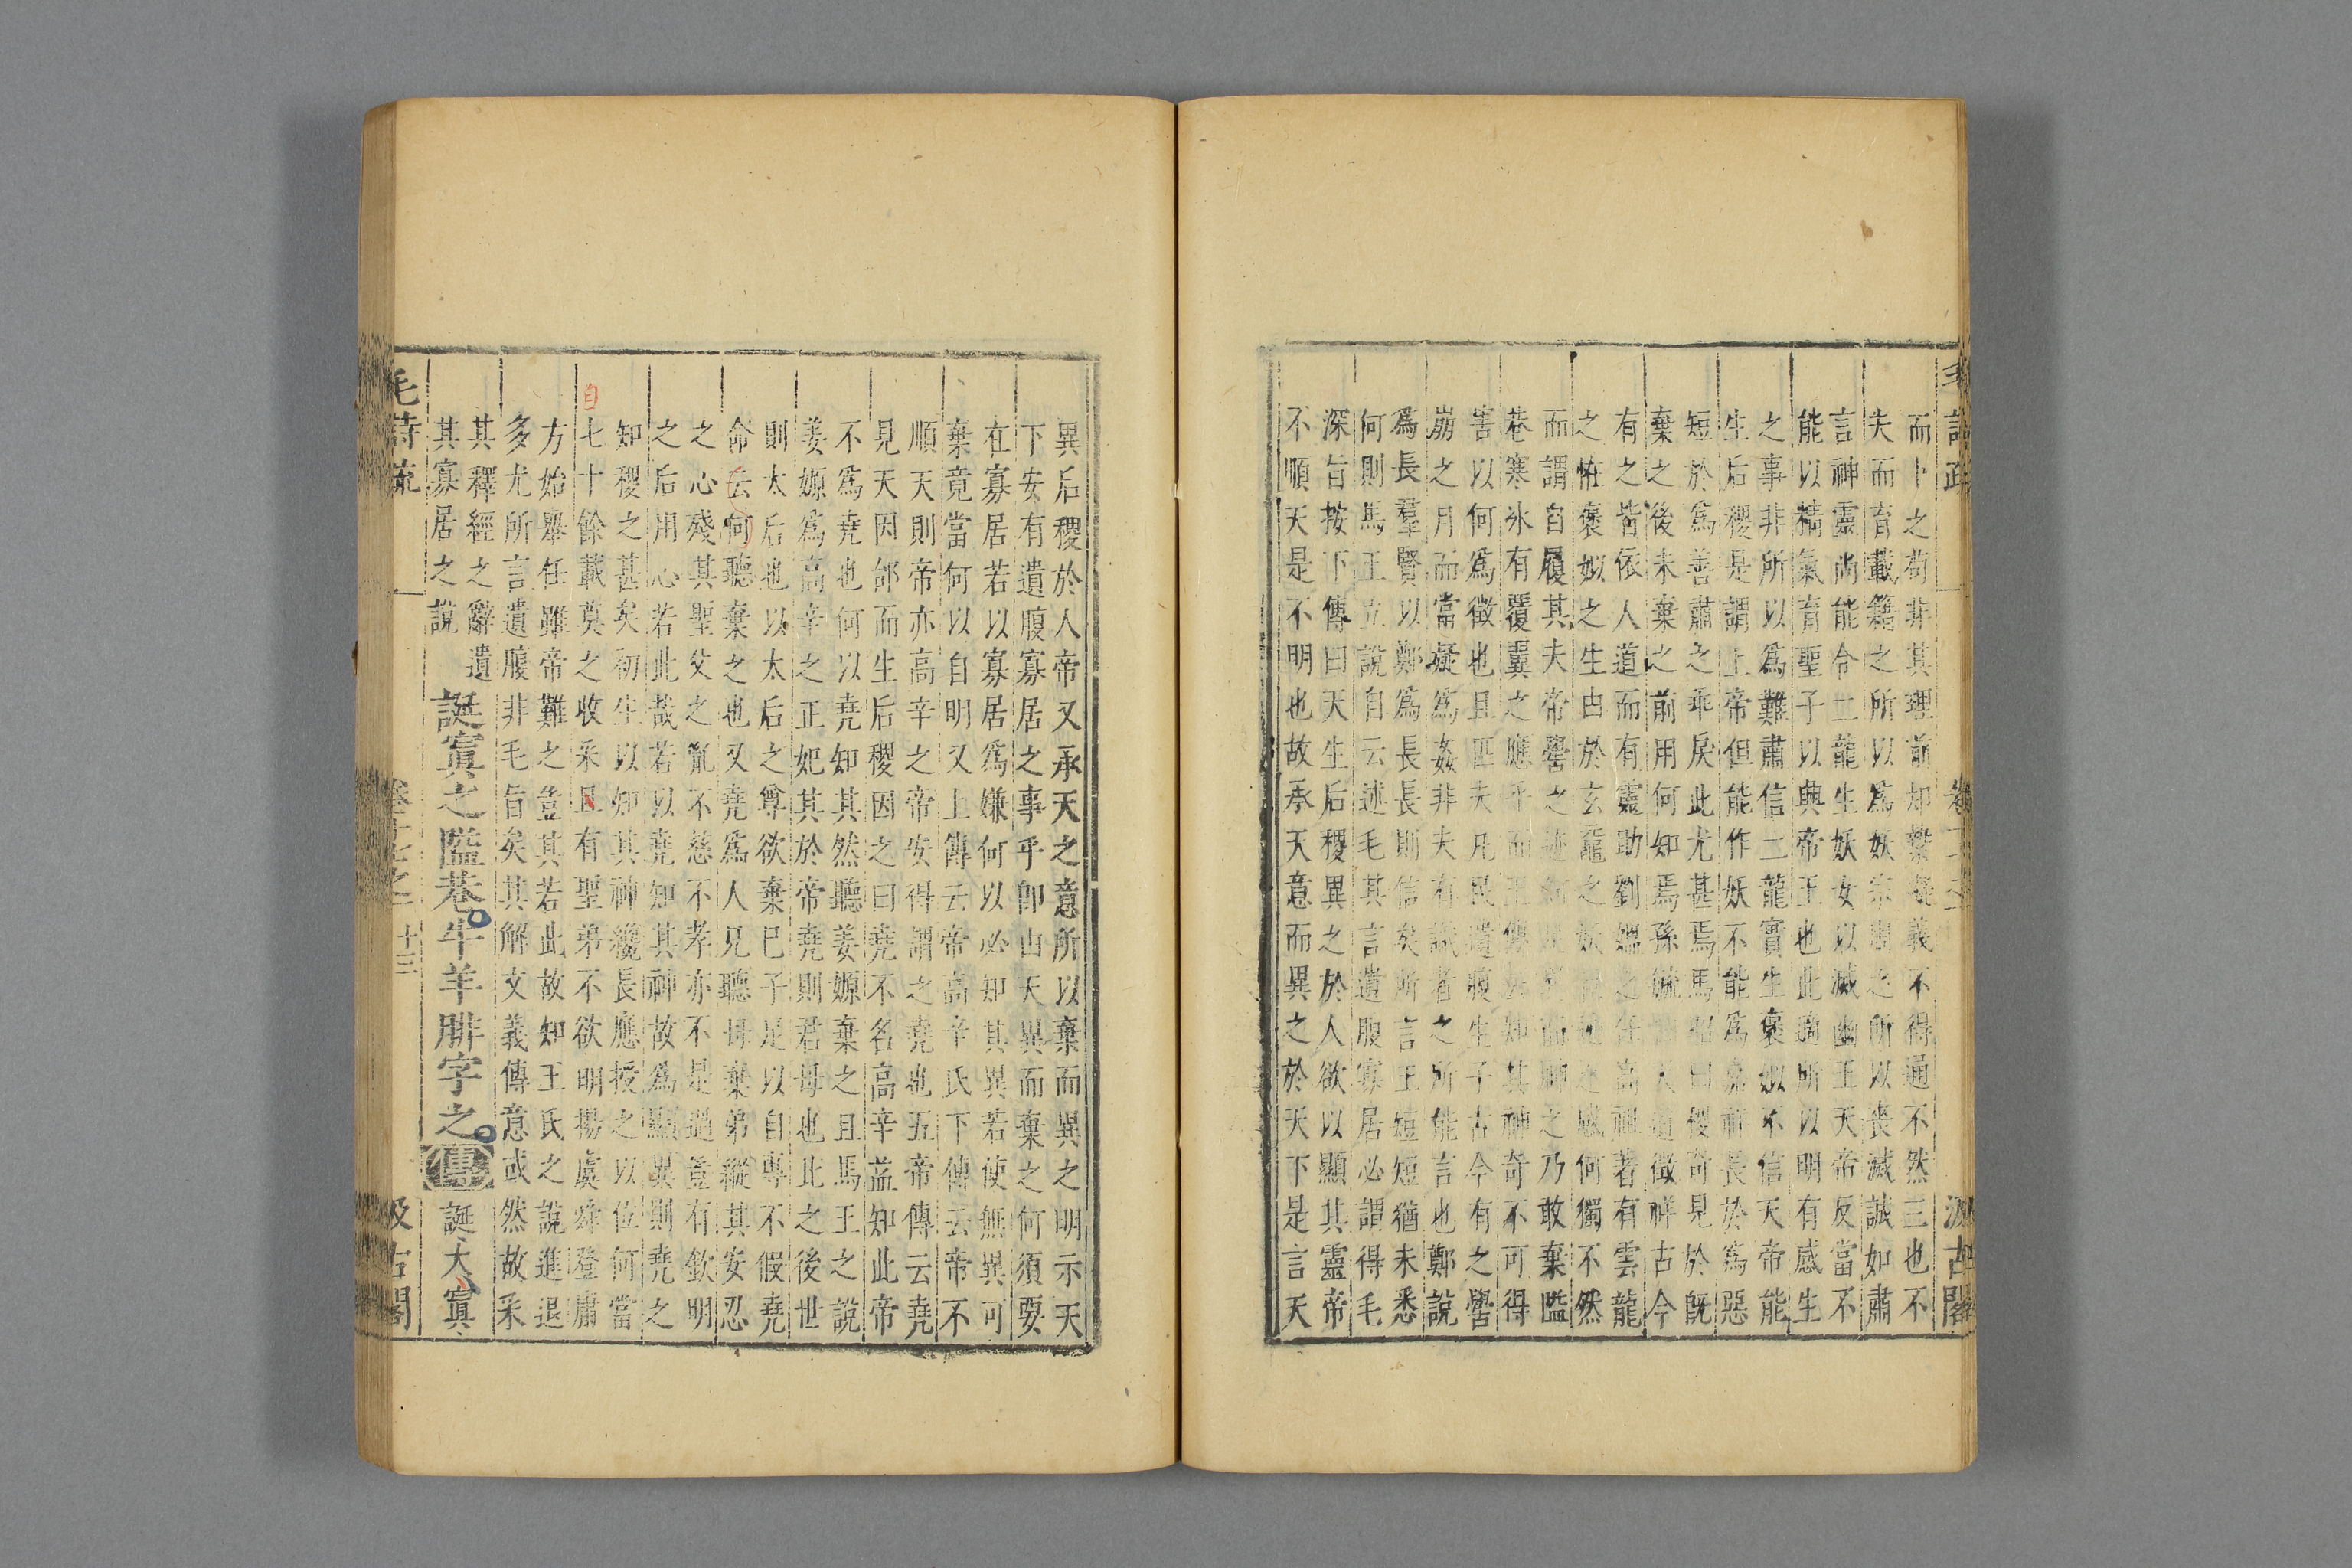 而卜之苟非其理前却縶疑義不得通不然三也不
夫而育載籍之所以爲妖宗周之所以喪滅誠如肅
言神靈尚能令二龍生妖女以滅幽王天帝反當不
能以精氣育聖子以興帝王也此適所以明有感生
之事非所以爲難肅信二龍實生襃姒不信天帝能
生后稷是謂上帝但能作妖不能爲嘉祥長於爲惡
短於爲善肅之乖戾此尤甚焉馬昭曰稷奇見於旣
棄之後未棄之前用何知焉孫毓云天道徵祥古今
有之皆依人道而有靈助劉媪之任高祖著有雲龍
之怪襃姒之生由於玄黿之妖巨迹之感何獨不然
而謂自履其夫帝嚳之迹何足異而神之乃敢棄隘
巷寒氷有覆翼之應乎而王傳云知其神奇不可得
害以何爲徵也且匹夫凡民遺腹生子古今有之嚳
崩之月而當疑爲姦非夫有識者之所能言也鄭說
爲長羣賢以鄭爲長長則信矣所言王短短猶未悉
何則馬王立說自云述毛其言遺腹寡居必謂得毛
深旨按下傳曰天生后稷異之於人欲以顯其靈帝
不順天是不明也故承天意而異之於天下是言天
異后稷於人帝又承天之意所以棄而異之明示天
下安有遺腹寡居之事乎卽由天異而棄之何須要
在寡居若以寡居爲嫌何以必知其異若使無異可
棄竟當何以自明又上傳云帝高辛氏下傳云帝不
順天則帝亦高辛之帝安得謂之堯也五帝傳云堯
見天因邰而生后稷因之曰堯不名高辛益知此帝
不爲堯也何以堯知其然聽姜嫄棄之且馬王之說
姜嫄爲高辛之正妃其於帝堯則君母也此之後世
則太后也以太后之尊欲棄已子足以自專不假堯
命云何聽棄之也又堯爲人兄聽母棄弟縱其安忍
之心殘其聖父之胤不慈不孝亦不是過豈有欽明
之后用心若此哉若以堯知其神故爲顯異則堯之
知稷之甚矣初生以知其神纔長應授之以位何當
自
七十餘載莫之收采且有聖弟不欲明揚虞舜登庸
方始舉任雖帝難之豈其若此故知王氏之說進退
多尤所言遺腹非毛旨矣其解文義傳意或然故采
其釋經之辭遺
其寡居之說
誕寘之隘巷牛羊腓字之
傳
誕大寘
毛詩疏
十三
汲古閣